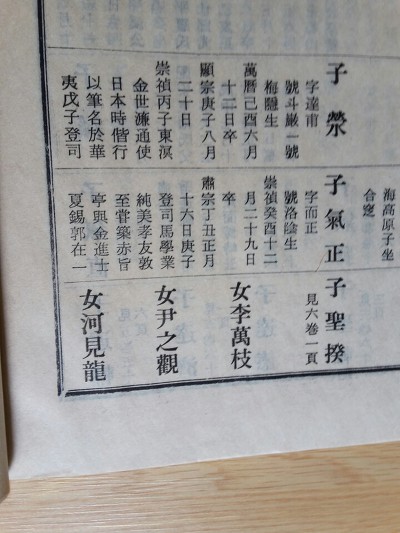 子榮
字達甫
號斗巖一號
梅隱生
萬曆己酉六月
十二日卒
顯宗庚子八月
二十日
崇禎丙子東溟
金世濂通使
日本時偕行
以筆名於華
夷戊子登司
海高原子坐
合窆
子氣正
字而正
號洛陰生
崇禎癸酉十二
月二十九日
卒
肅宗丁丑正月
十六日庚子
登司馬學業
純美孝友敦
至嘗築赤旨
亭與金進士
夏錫郭在一
子聖揆
見六卷一頁
女李萬枝
女尹之觀
女河見龍